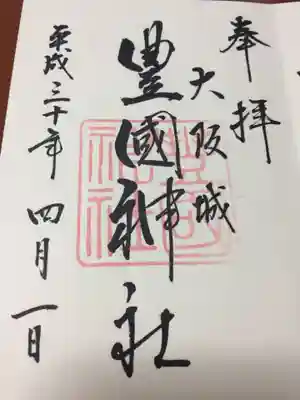 奉拝
大阪城
豊國神社
平成三十年四月一日